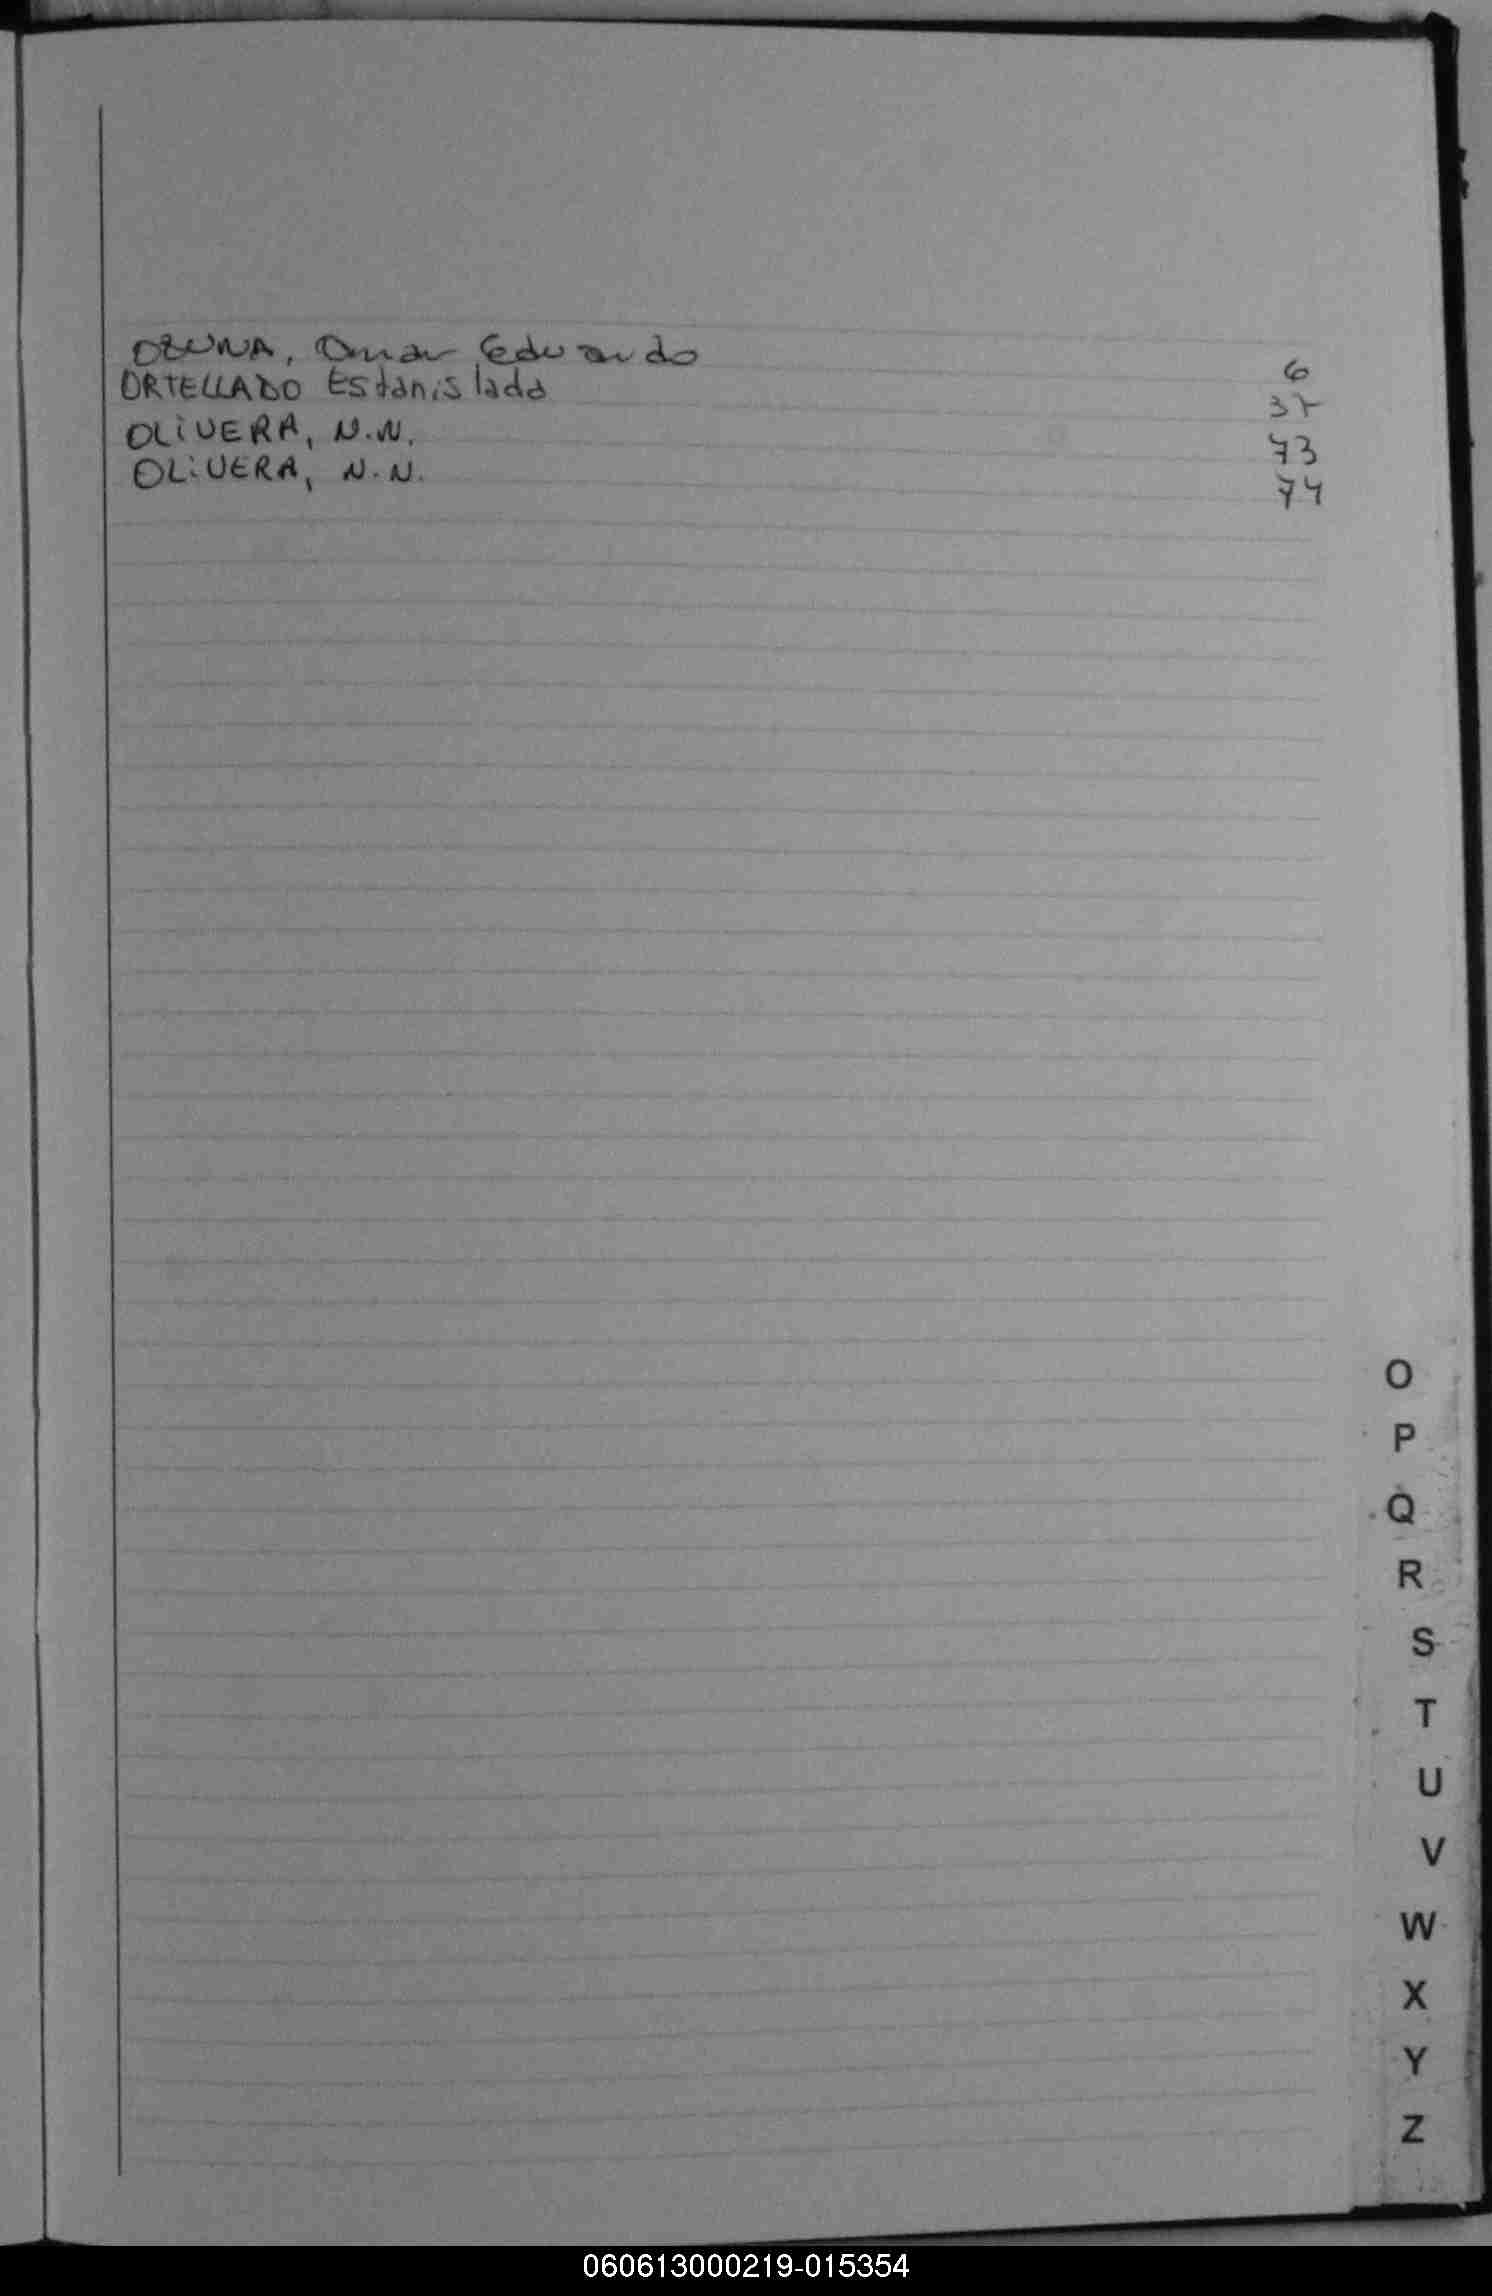 OZUNA, Omar Eduardo 6
ORTELLADO Estanislado 37
OLIVERA, N.N. 73
OLIVERA, N.N. 74
O
P
Q
R
S
T
U
V
W
X
Y
Z
060613000219-015354